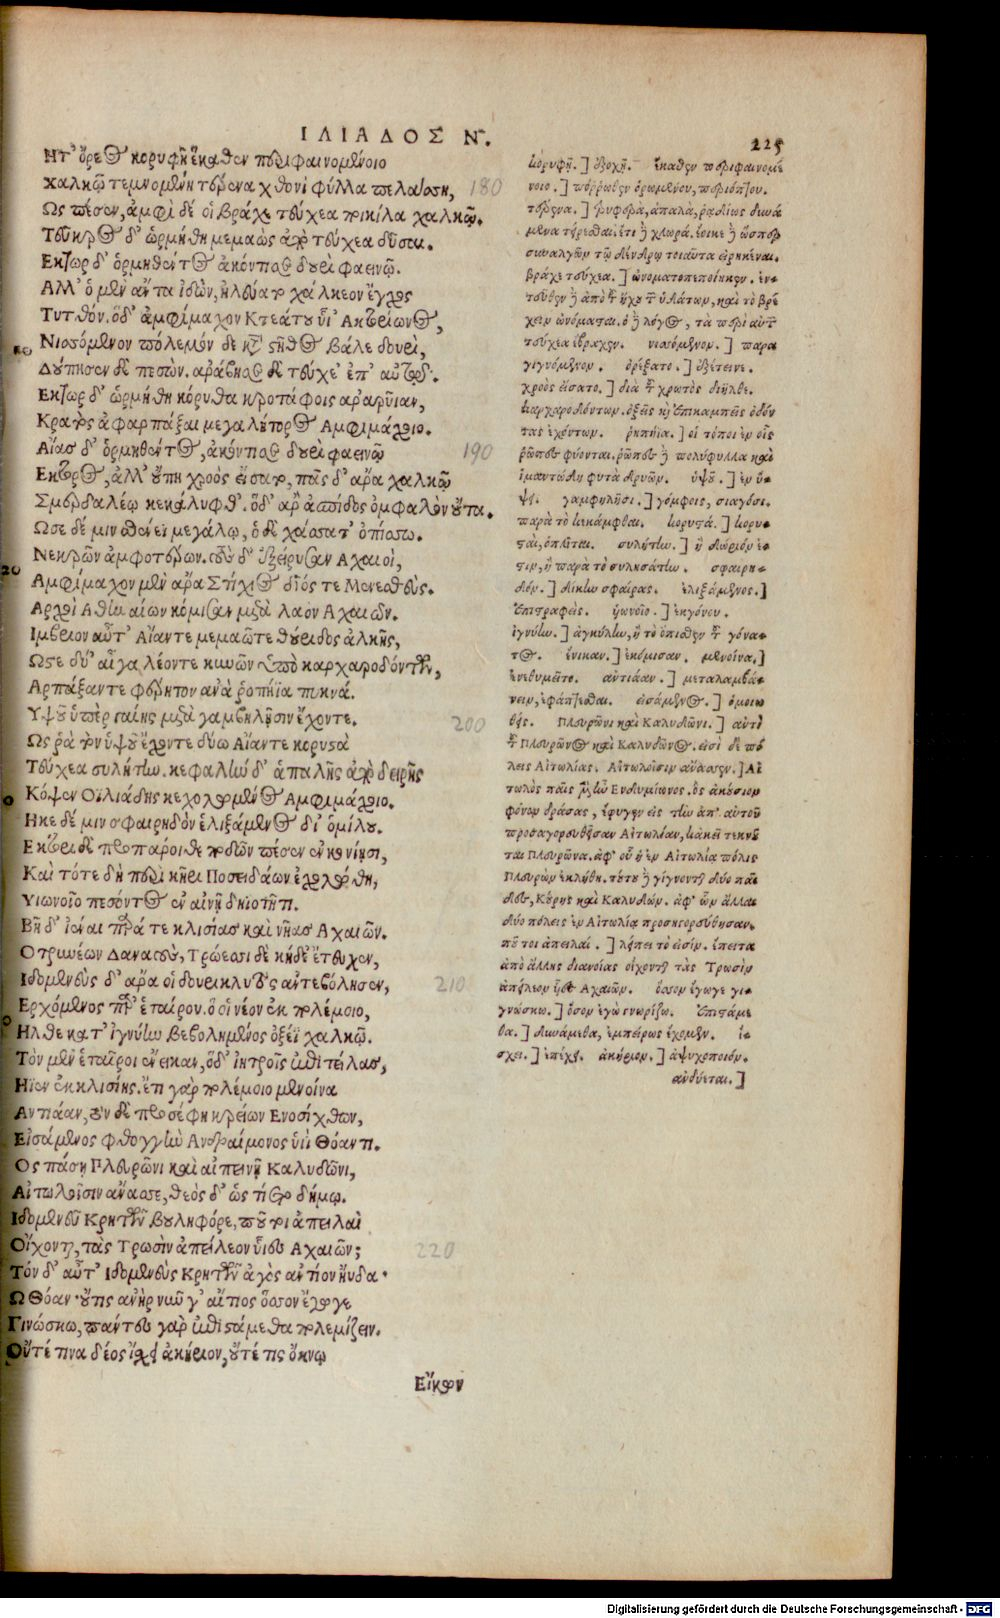 ΙΛΙΑΔΟΣ Ν.
225
Ητ' ὄρεος κορυφῇ ἕκαθεν περιφαινομένοιο
Χαλκῷ τεμνομένη τέρενα χθονὶ φύλλα πελάσση,
180
Ως πέσεν, ἀμφὶ δέ οἱ βράχε τεύχεα ποικίλα χαλκῷ.
Τεῦκρος δ' ὡρμήθη μεμαὼς ἀπὸ τεύχεα δῦσαι.
Εκτωρ δ' ὁρμηθέντος ἀκόντισε δουρὶ φαεινῷ.
Αλλ' ὁ μὲν ἄντα ἰδὼν, ἠλεύατο χάλκεον ἔγχος
Τυτθόν. ὁ δ' ἀμφίμαχον Κτεάτου υἷ' Ακτορίωνος,
Νισσόμενον πόλεμόν δε κατὰ στῆθος βάλε δουρὶ,
Δούπησεν δὲ πεσών. ἀράβησε δὲ τεύχε' ἐπ' αὐτῷ.
Εκτωρ δ' ὡρμήθη κόρυθα κροτάφοις ἀραρυῖαν,
Κρατὸς ἀφαρπάξαι μεγαλήτορος Αμφιμάχοιο.
Αἴας δ' ὁρμηθέντος, ἀκόντισε δουρὶ φαεινῷ
190
Εκτορος, ἀλλ' οὔπη χροὸς εἴσατο, πᾶς δ' ἄρα χαλκῷ
Σμερδαλέῳ κεκάλυφθ'. ὁ δ' ἄρ' ἀσπίδος ὀμφαλὸν οὖτα.
Ωσε δέ μιν σθένεϊ μεγάλῳ, ὁ δὲ χάσσατ' ὀπίσσω.
Νεκρῶν ἀμφοτέρων. τοὺς δ' ἐξείρυσαν Αχαιοὶ,
20
Αμφίμαχον μὲν ἄρα Στιχίος δῖός τε Μενεσθεὺς.
Αρχοὶ Αθηναίων κόμισαν μετὰ λαὸν Αχαιῶν.
Ιμβριον αὖτ' Αἴαντε μεμαῶτε θούριδος ἀλκῆς,
Ωστε δύ' αἶγα λέοντε κυνῶν ὑπὸ καρχαροδόντων,
Αρπάξαντε φέρητον ἀνὰ ῥωπήϊα πυκνά.
Υψοῦ ὑπὲρ γαίης μετὰ γαμφηλῇσιν ἔχοντε.
200
Ως ῥὰ τὸν ὑψοῦ ἔχοντε δύω Αἴαντε κορυστὰ
Τεύχεα συλήτην. κεφαλὴν δ' ἁπαλῆς ἀπὸ δειρῆς
Κόψεν Οϊλιάδης κεχολωμένος Αμφιμάχοιο.
Ηκε δέ μιν σφαιρηδὸν ἑλιξάμενος δι' ὁμίλου.
Εκτορι δὲ προπάροιθε ποδῶν πέσεν ἐν κονίῃσι,
Καὶ τότε δὴ περὶ κῆρι Ποσειδάων ἐχολώθη,
Υιωνοῖο πεσόντος ἐν αἰνῇ δηϊοτῆτι.
Βῆ δ' ἰέναι παρά τε κλισίας καὶ νῆας Αχαιῶν.
Οτρυνέων Δαναοὺς, Τρώεσσι δὲ κήδε' ἔτευχεν,
Ιδομενεὺς δ' ἄρα οἱ δουρικλυτὸς ἀντεβόλησεν,
210
Ερχόμενος παρ' ἑταίρου. ὅ οἱ νέον ἐκ πολέμοιο,
Ηλθε κατ' ἰγνύην βεβολημένος ὀξέϊ χαλκῷ.
Τὸν μὲν ἑταῖροι ἔνεικαν, ὁ δ' ἰητροῖς ἐπιτείλας,
Ηϊεν ἐκ κλισίης. ἔτι γὰρ πολέμοιο μενοίνα
Αντιάαν, τὸν δὲ προσέφη κρείων Ενοσίχθων,
Εἰσάμενος φθογγὴν Ανδραίμονος υἷϊ Θόαντι.
Ος πάσῃ Πλευρῶνι καὶ αἰπεινῇ Καλυδῶνι,
Αἰτωλοῖσιν ἄνασσε, θεὸς δ' ὡς τίετο δήμῳ.
Ιδομενεῦ Κρητῶν βουληφόρε, ποῦ τοι ἀπειλαὶ
Οἴχονται, τὰς Τρωσὶν ἀπείλεον υἷες Αχαιῶν;
220
Τόν δ' αὖτ' Ιδομενεὺς Κρητῶν ἀγὸς ἀντίον ηὔδα·
Ω Θόαν· οὔτις ἀνὴρ νῦν γ' αἴτιος ὅσσον ἔγωγε
Γινώσκω, πάντες γὰρ ἐπιστάμεθα πολεμίζειν.
Οὔτέ τινα δέος ἴσχει ἀκήριον, οὔτέ τις ὄκνῳ
Εἴκων
κορυφῇ.] ἐξοχῇ. ἕκαθεν περιφαινομέ
νοιο.] πόρρωθεν ὁρωμένου, περιόπτου.
τέρενα.] τρυφερὰ, ἁπαλὰ, ῥᾳδίως δυνά
μενα τείρεσθαι. ἔτι ἢ χλωρά. ἔοικε ἢ ὥσπερ
συναλγῶν τῷ δένδρῳ τοιαῦτα εἰρηκέναι.
βράχε τεύχεα.] ὠνοματοπεποίηκεν. ἐν-
τεῦθεν ἢ ἀπὸ τοῦ ἤχου τοῦ ὑδάτων, καὶ τὸ βρέ
χειν ὠνόμασται. ὁ ἢ λόγος, τὰ περὶ αὐτὸν
τεύχεα ἔβραχεν. νισσόμενον.] παρα
γιγνόμενον. ὀρέξατο.] ἐξέτεινε.
χροὸς εἴσατο.] διὰ τοῦ χρωτὸς διῆλθε.
καρχαροδόντων. ὀξεῖς καὶ ἐπικαμπεῖς ὀδόν
τας ἐχόντων. ῥηπήϊα.] οἱ τόποι ἐν οἷς
ῥῶπες φύονται. ῥῶπες ἢ πολύφυλλα καὶ
ἱμαντώδη φυτὰ δρυῶν. ὑψοῦ.] ἐν ὕ-
ψει. γαμφηλῇσι.] γόμφοις, σιαγόσι.
παρὰ τὸ κεκάμφθαι. κορυστά.] κορυ-
σταὶ, ὁπλῖται. συλήτην.] ἢ δωριόν ἐ-
στιν, ἢ παρὰ τὸ συλησάτην. σφαιρη-
δόν.] δίκην σφαίρας. ἑλιξάμενος.]
ἐπιστραφείς. υἱωνοῖο.] ἐκγόνου.
ἰγνύην.] ἀγκύλην, ἢ τὸ ὄπισθεν τοῦ γόνα-
τος. ἔνικαν.] ἐκόμισαν. μενοίνα.]
ἐνεθυμεῖτο. ἀντιάαν.] μεταλαμβά-
νειν, ἐφάπτεσθαι. εἰσάμενος.] ὁμοιω
θείς. Πλευρῶνι καὶ Καλυδῶνι.] ἀντὶ
τοῦ Πλευρῶνος καὶ Καλυδῶνος. εἰσὶ δὲ πό
λεις Αἰτωλίας. Αἰτωλοῖσιν ἄνασσεν.] Αἰ
τωλὸς παῖς μὲν ἦν Ενδυμίωνος. ὃς ἀκούσιον
φόνον δράσας, ἔφυγεν εἰς τὴν ἀπ' αὐτοῦ
προσαγορευθεῖσαν Αἰτωλίαν, κἀκεῖ τεκνοῦ
ται Πλευρῶνα. ἀφ' οὗ ἡ ἐν Αἰτωλίᾳ πόλις
Πλευρὼν ἐκλήθη. τούτου ἢ γίγνονται δύο παῖ
δες, Κούρης καὶ Καλυδών. ἀφ' ὧν ἄλλαι
δύο πόλεις ἐν Αἰτωλίᾳ προσηγορεύθησαν.
ποῦ τοι ἀπειλαί.] λείπει τὸ εἰσίν. ἔπειτα
ἀπὸ ἄλλης διανοίας οἴχονται τὰς Τρωσὶν
ἀπείλεον υἷες Αχαιῶν. ὅσσον ἔγωγε γι-
γνώσκω.] ὅσον ἐγὼ γνωρίζω. ἐπιστάμε
θα.] δυνάμεθα, ἐμπείρως ἔχομεν. ἴ-
σχει.] ἐπέχει. ἀκήριον.] ἀψυχοποιόν.
ἀνδύεται.]
Digitalisierung gefördert durch die Deutsche Forschungsgemeinschaft - DFG